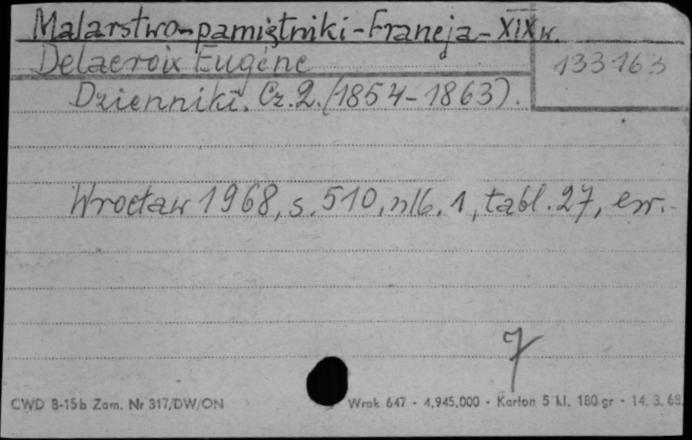 Malarstwo-pamiętniki-Francja-XIX w.
Delacroix Eugéne
133163
Dzienniki. Cz. 2. (1854-1863).
Wrocław 1968, s. 510, nlb. 1, tabl. 27, err.
7
CWD B-15b Zam. Nr 317/DW/ON
Wrak 647 - 4.945.000 - Karton 5 kl. 180 gr - 14. 3. 68